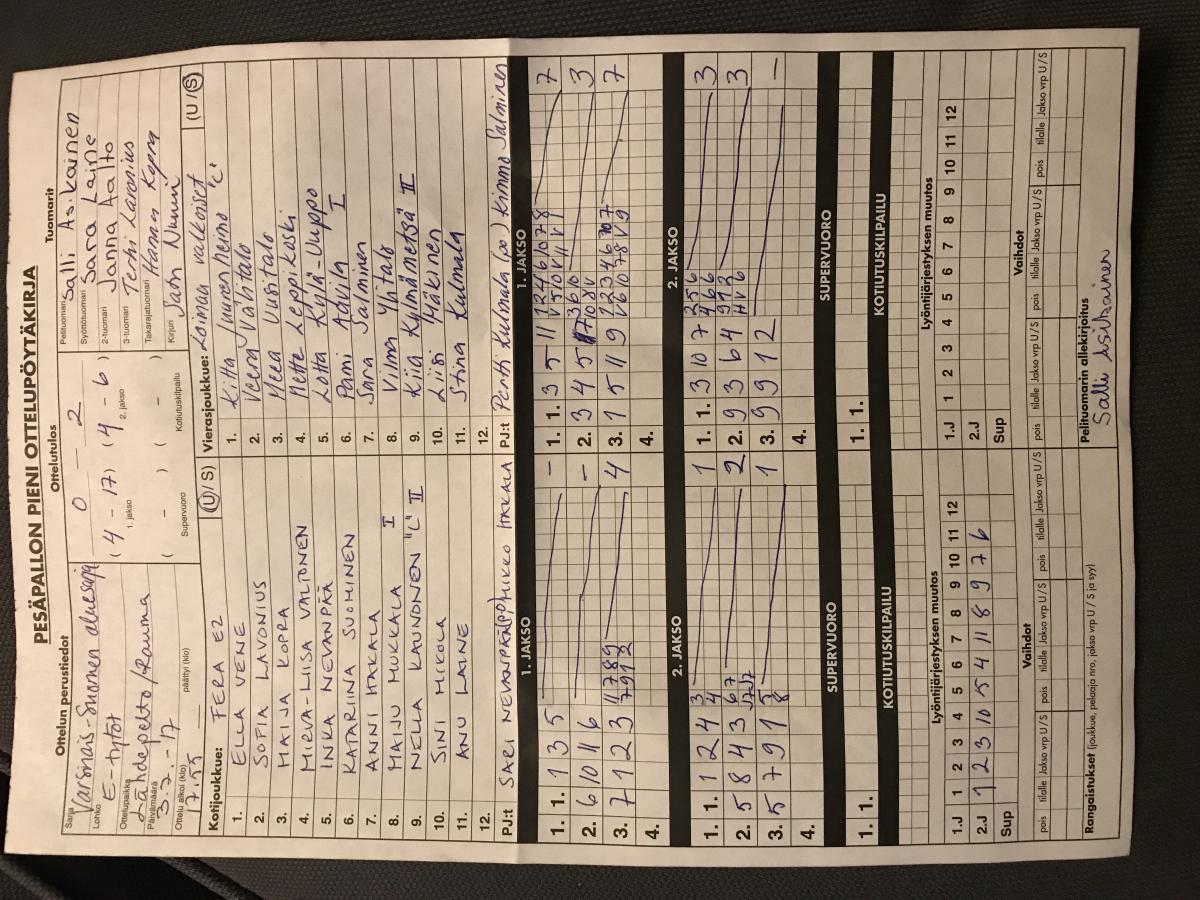 PESÄPALLON PIENI OTTELUPÖYTÄKIRJA
Ottelun perustiedot
Ottelutulos
Tuomarit
Sarja Varsinais-Suomen aluesarja
Lohko E-tytöt
Ottelupaikka Lähdepelto/Rauma
Päivämäärä 3.7.-17
Ottelu alkoi (klo) 17.55
päättyi (klo)
0 - 2
(4 - 17) (4 - 6)
1. jakso
2. jakso
( - ) ( - )
Supervuoro
Kotiutuskilpailu
Pelituomari Salli Asikainen
Syöttötuomari Sara Laine
2-tuomari Janna Aalto
3-tuomari Terhi Laronius
Takarajatuomari Hanna Kopra
Kirjuri Satu Nummi
Kotijoukkue: FERA E2 (U/S)
1. ELLA VENE
2. SOFIA LAVONIUS
3. MAIJA KOPRA
4. MIRVA-LIISA VALTONEN
5. INKA NEVANPÄÄ
6. KATARIINA SUOMINEN
7. ANNI HAKALA
8. MAIJU MUKKALA I
9. NELLA KAUNONEN "C" II
10. SINI MIKOLA
11. ANU LAINE
12.
PJ:t SARI NEVANPÄÄ(PJ) MIKKO HAKALA
Vierasjoukkue: Loimaan valkoiset (U/S)
1. Kitta Juurenheimo "C"
2. Veera Välitalo
3. Meea Uusitalo
4. Mette Leppikoski
5. Lotta Kylä-Uuppo
6. Pami Aavila I
7. Sara Salminen
8. Vilma Ylitalo
9. Kiia Kylmämetsä II
10. Liisi Mäkinen
11. Stina Kulmala
12.
PJ:t Pentti Kulmala (po) Kimmo Salminen
1. JAKSO
1. 1. 1 3 5 -
2. 6 10 11 6 -
3. 7 1 2 3 4
4.
1. JAKSO
1. 1. 3 5 11 7
2. 3 4 5 3
3. 1 5 11 9 7
4.
2. JAKSO
1. 1. 1 2 4 1
2. 5 8 4 3 2
3. 5 7 9 1 1
4.
2. JAKSO
1. 1. 3 10 7 3
2. 9 3 6 4 3
3. 9 9 1 2 -
4.
SUPERVUORO
1. 1.
SUPERVUORO
1. 1.
KOTIUTUSKILPAILU
KOTIUTUSKILPAILU
Lyöntijärjestyksen muutos
1.J 1 2 3 4 5 6 7 8 9 10 11 12
2.J 1 2 3 10 5 4 11 8 9 7 6
Sup
Lyöntijärjestyksen muutos
1.J 1 2 3 4 5 6 7 8 9 10 11 12
2.J
Sup
Vaihdot
pois tilalle Jakso vrp U/S pois tilalle Jakso vrp U/S pois tilalle Jakso vrp U/S
Vaihdot
pois tilalle Jakso vrp U/S pois tilalle Jakso vrp U/S pois tilalle Jakso vrp U/S
Rangaistukset (joukkue, pelaaja nro, jakso vrp U / S ja syy)
Pelituomarin allekirjoitus
Salli Asikainen